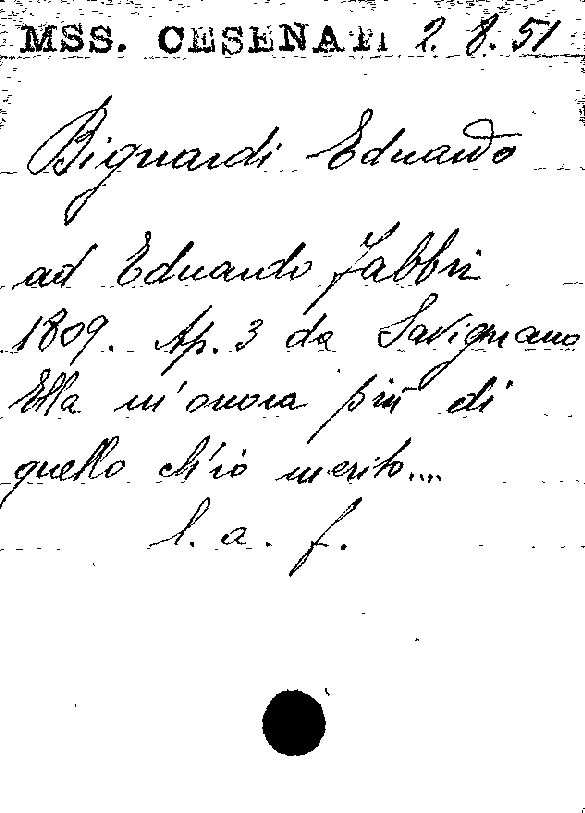 MSS. CESENATI 2. 8. 51
Bignardi Eduardo
ad Eduardo Fabbri
1809. Ap. 3 da Savignano
Ella m'onora più di
quello ch'io merito....
l. a. f.